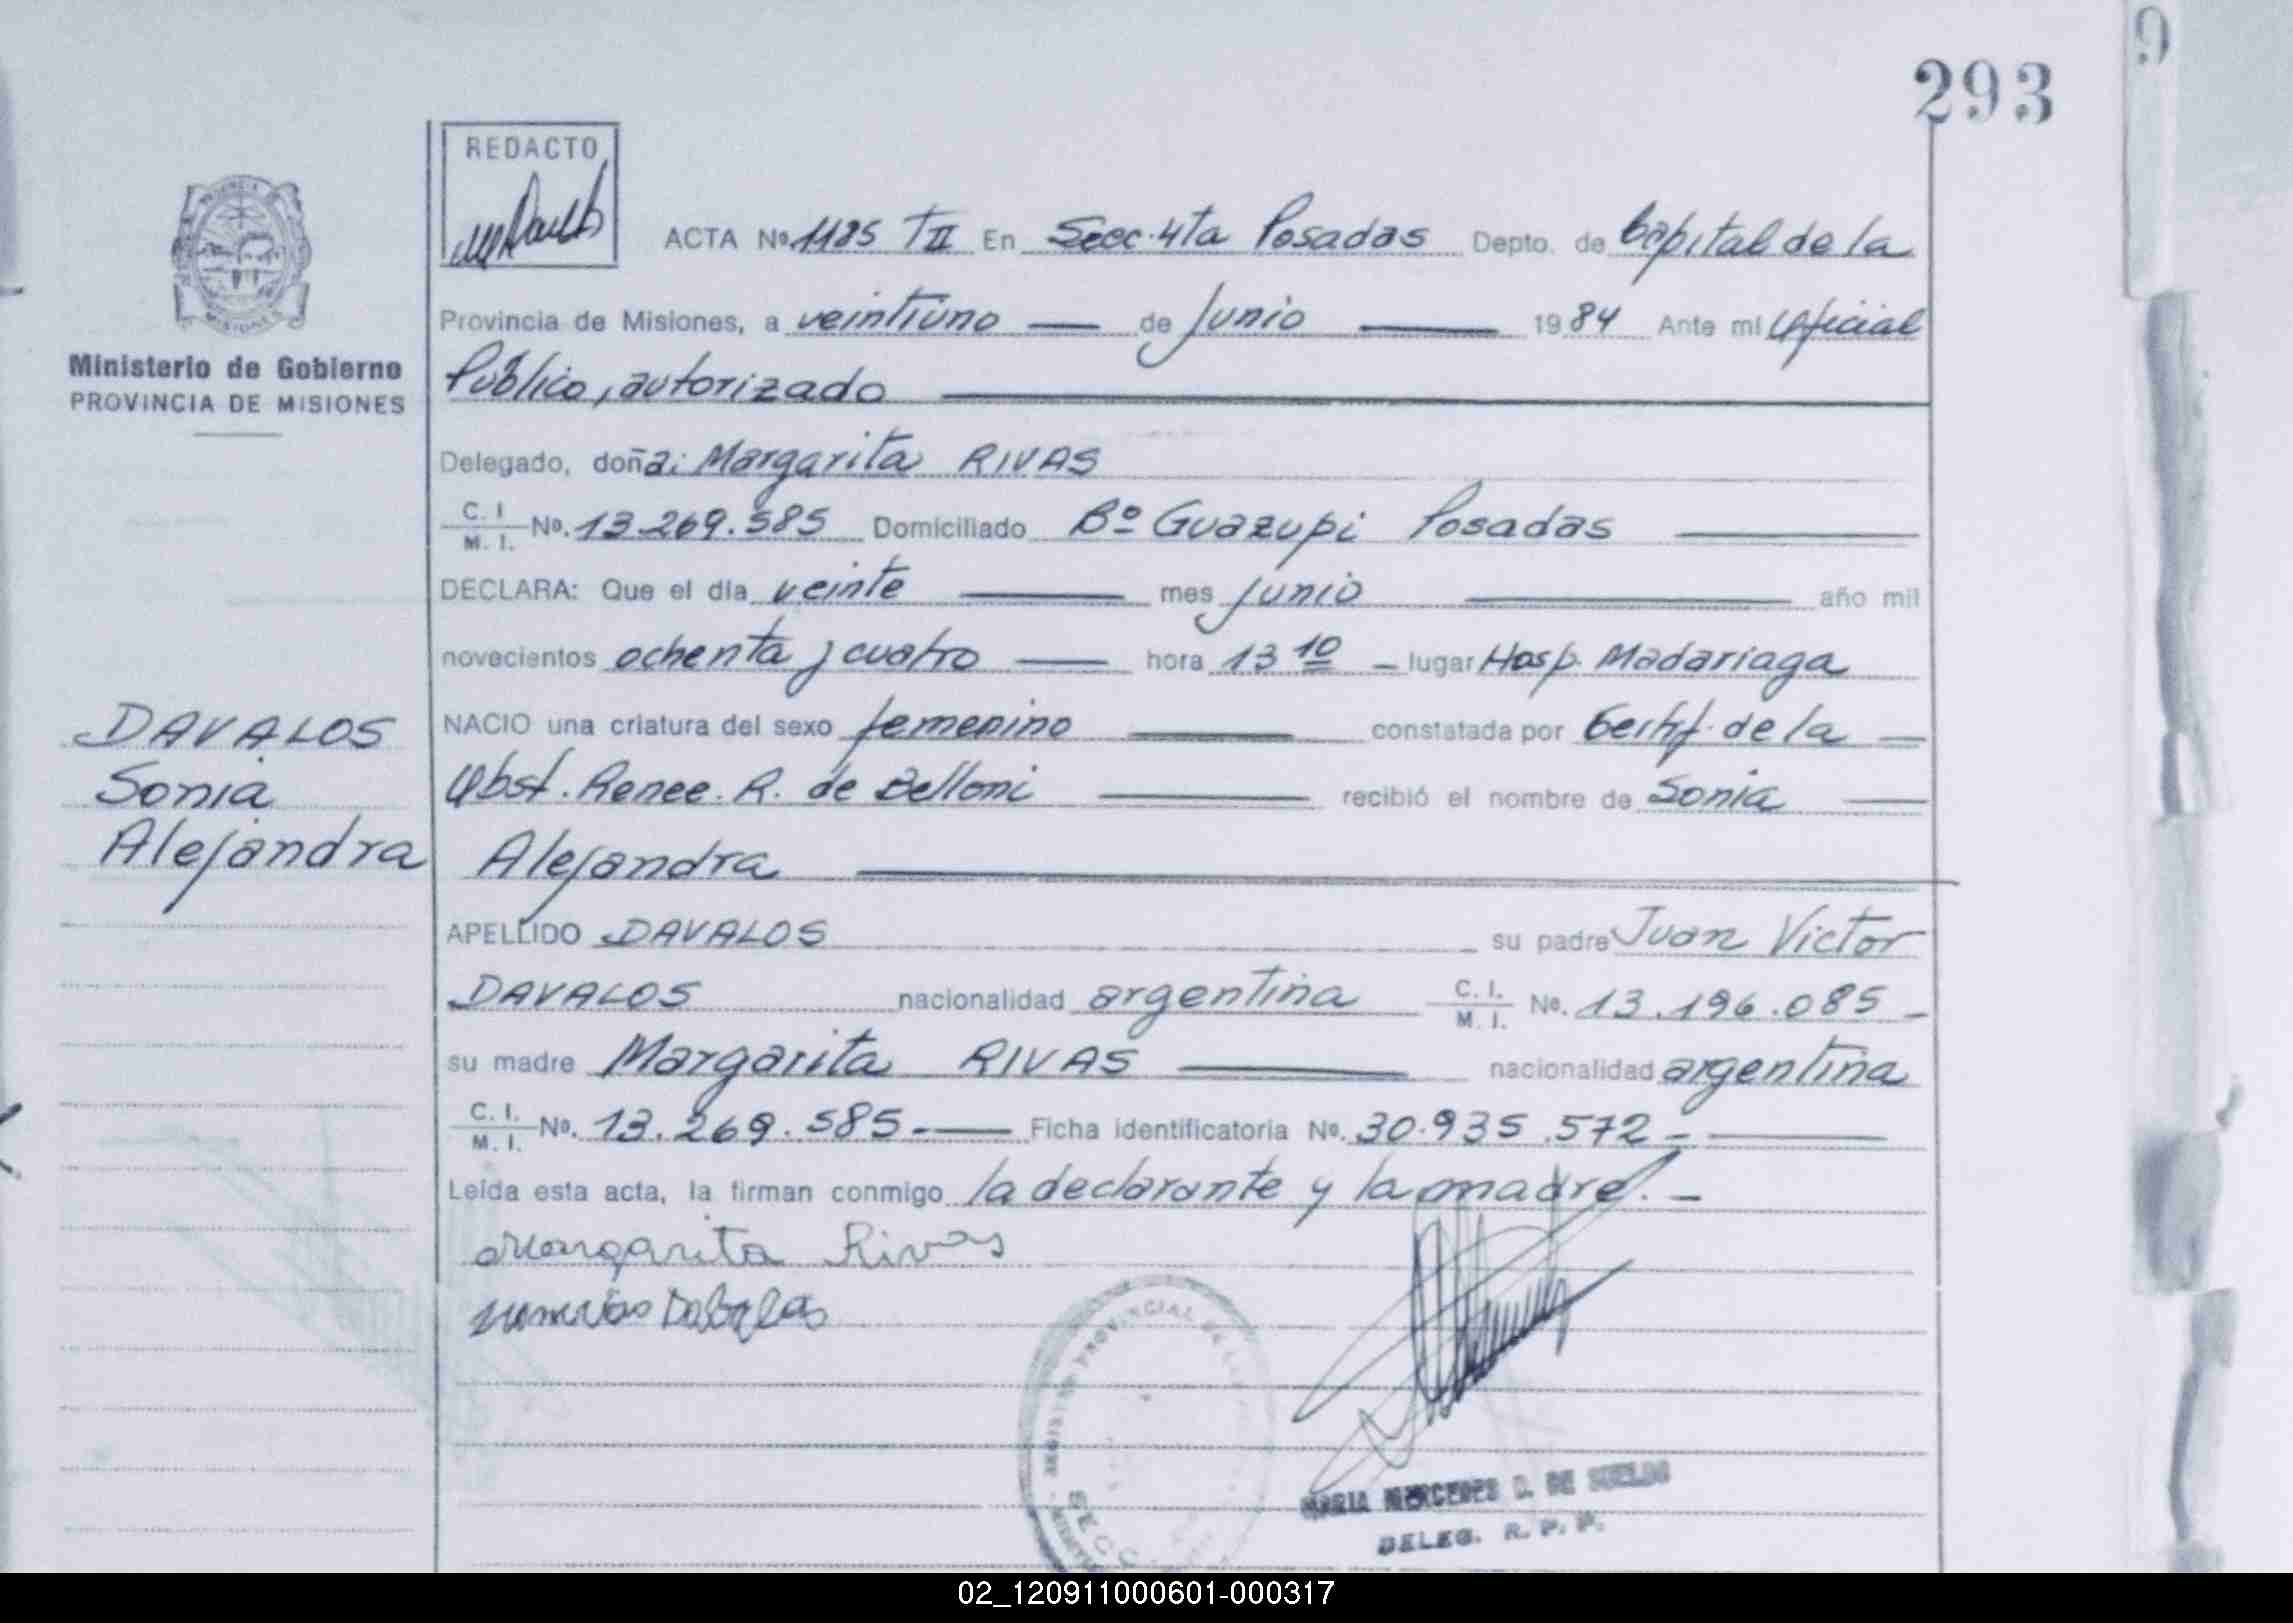 293
REDACTO
ACTA Nº 1185 TII En Secc. 4ta Posadas Depto. de Capital de la
Provincia de Misiones, a veintiuno de Junio 1984 Ante mi Oficial
Público, autorizado
Ministerio de Gobierno
PROVINCIA DE MISIONES
Delegado, doña: Margarita RIVAS
C. I.
M. I. Nº. 13.269.585 Domiciliado Bº Guazupi Posadas
DECLARA: Que el día veinte mes Junio año mil
novecientos ochenta y cuatro hora 13 10 lugar Hosp. Madariaga
DAVALOS
Sonia
Alejandra
NACIO una criatura del sexo femenino constatada por Certif. de la
Obst. Renee. R. de Belloni recibió el nombre de Sonia
Alejandra
APELLIDO DAVALOS su padre Juan Victor
DAVALOS nacionalidad argentina C. I. M. I. Nº. 13.196.085
su madre Margarita RIVAS nacionalidad argentina
C. I.
M. I. Nº. 13.269.585.- Ficha identificatoria Nº. 30.935.572-
Leída esta acta, la firman conmigo la declarante y la madre.-
Margarita Rivas
PROVINCIAL DE
SECC.
MARIA MERCEDES D. DE SUELDO
DELEG. R. P. P.
02_120911000601-000317